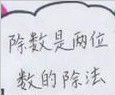 除数是两位
数的除法